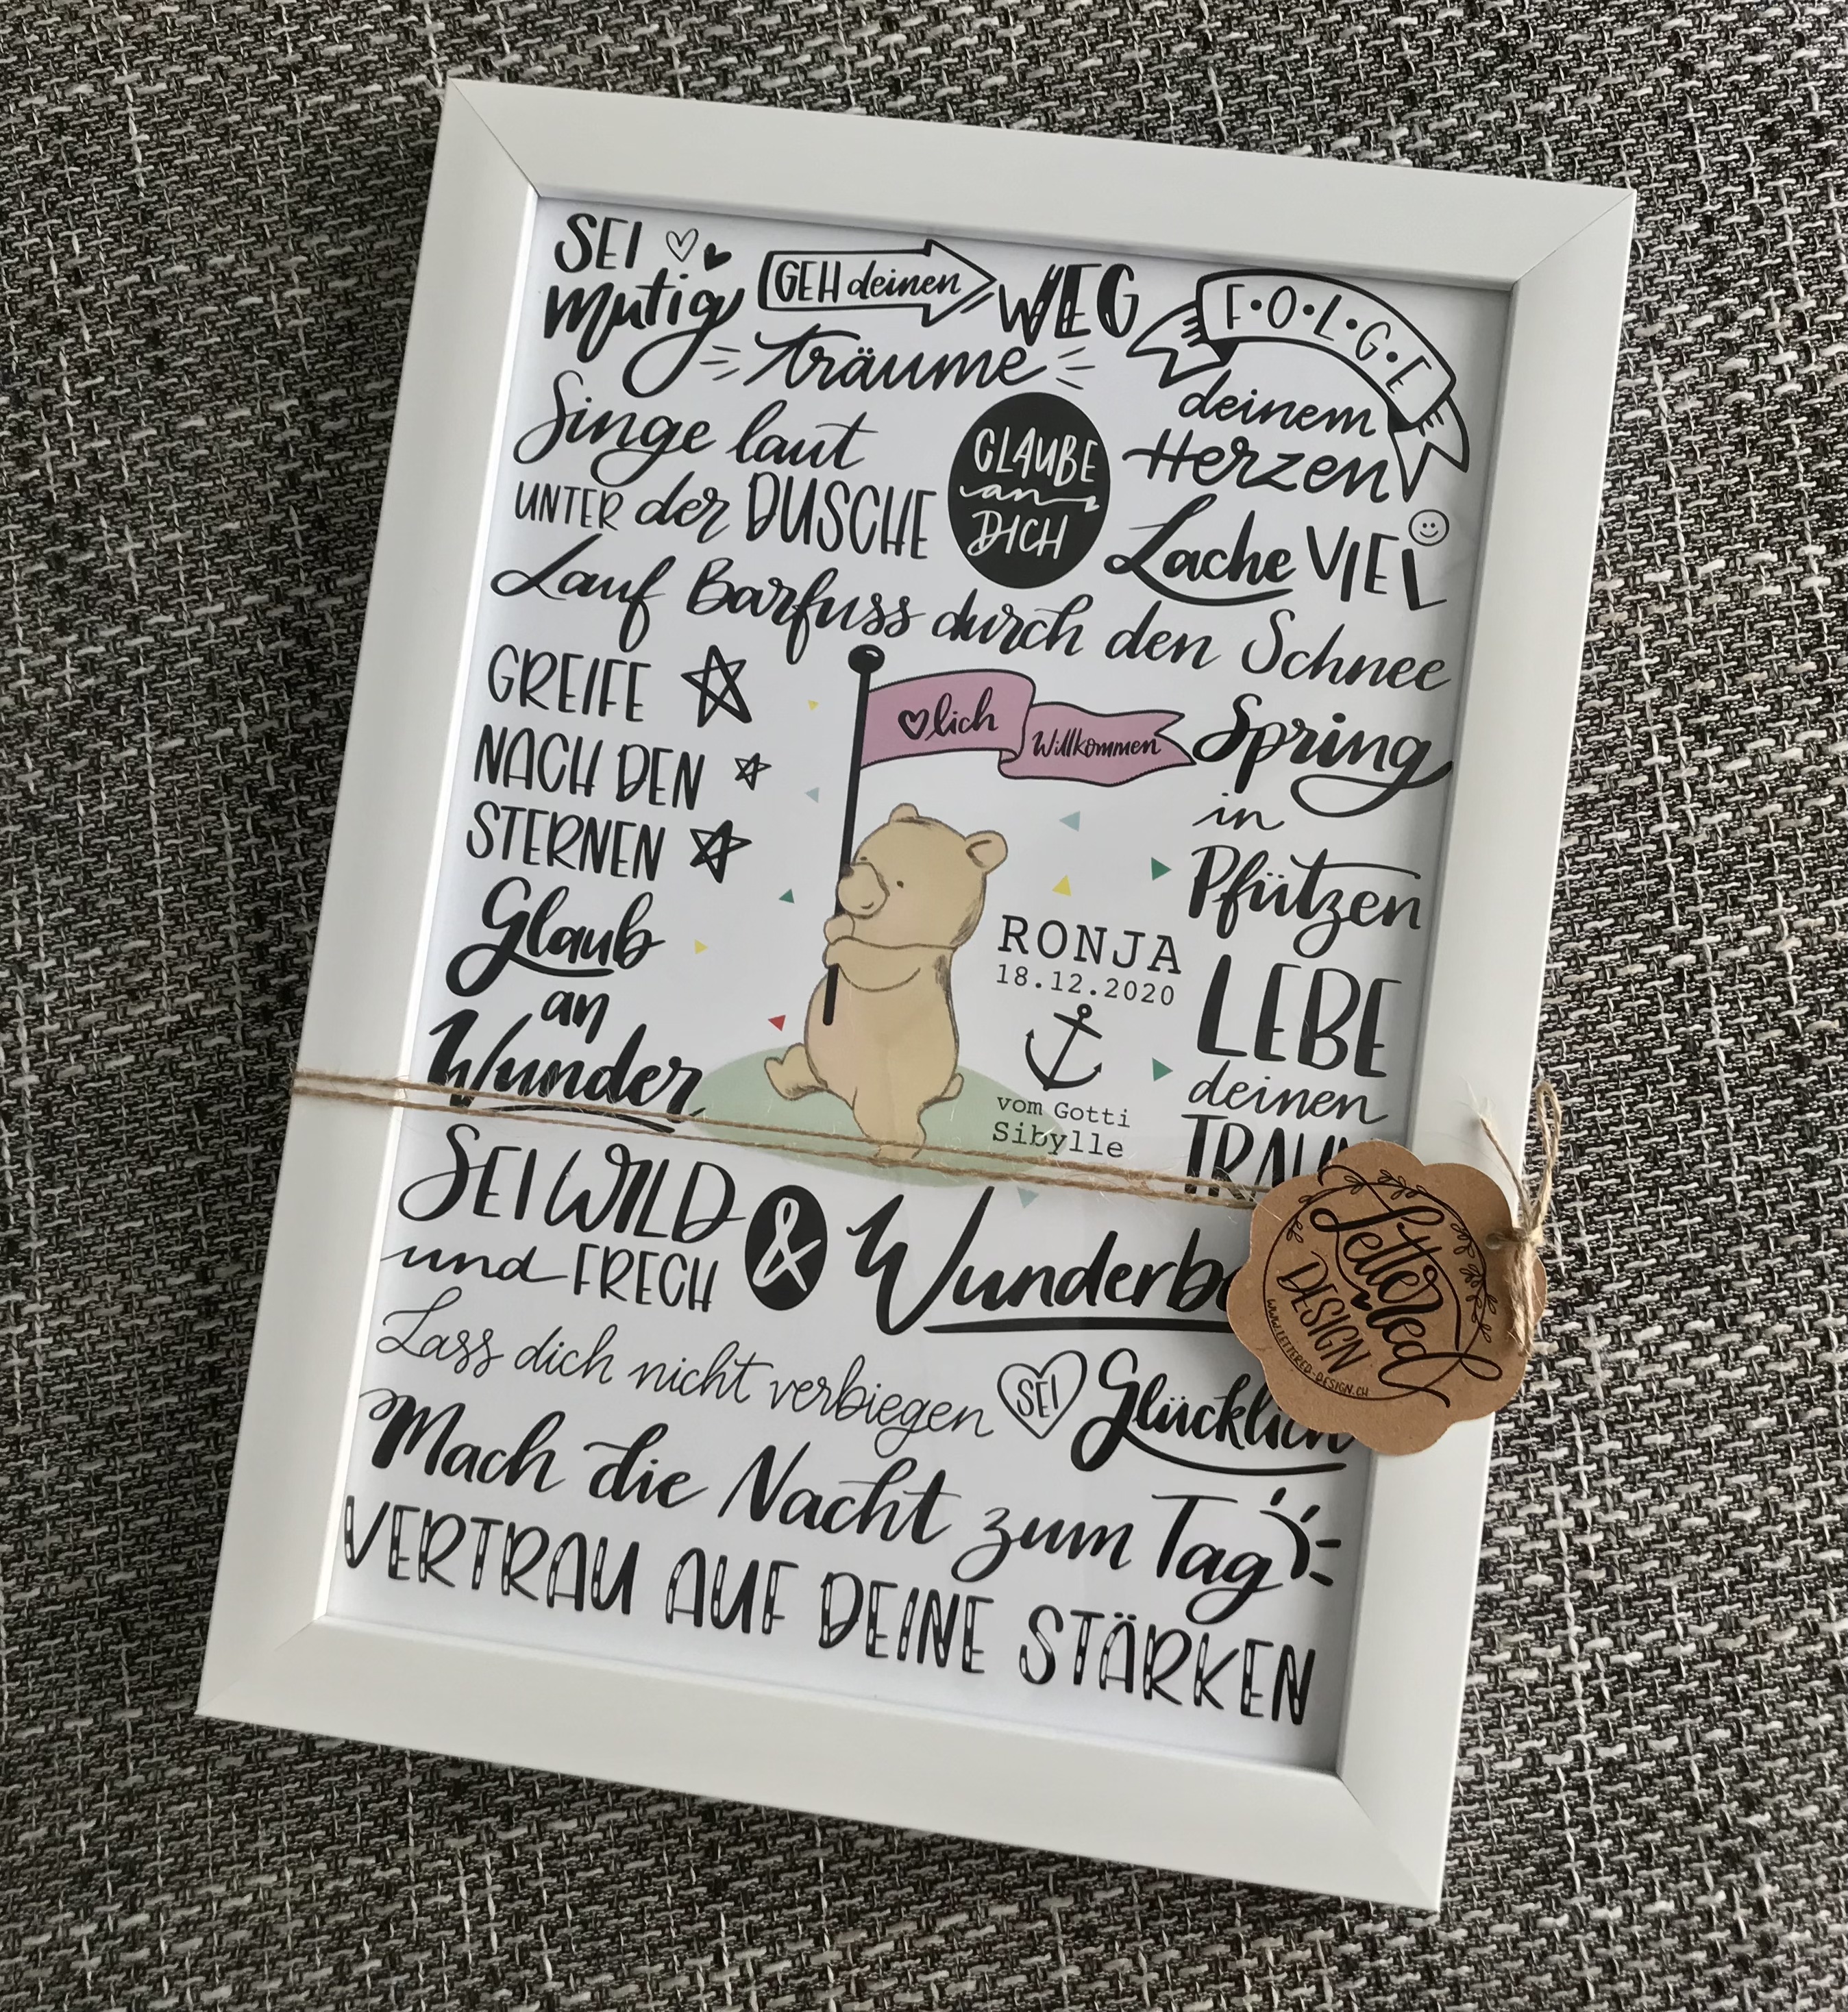 SEI
mutig
GEH deinen
WEG
F•O•L•G•E
deinem
Herzen
träume
Singe laut
UNTER der DUSCHE
GLAUBE
an
DICH
Lache VIEL
Lauf Barfuss durch den Schnee
GREIFE
NACH DEN
STERNEN
♡lich
Willkommen
Spring
in
Pfützen
Glaub
an
Wunder
RONJA
18.12.2020
vom Gotti
Sibylle
LEBE
deinen
TRAUM
SEI WILD
und FRECH
&
Wunderba
Lettered
DESIGN
WWW.LETTERED-DESIGN.CH
Lass dich nicht verbiegen
SEI
Glücklich
Mach die Nacht zum Tag
VERTRAU AUF DEINE STÄRKEN